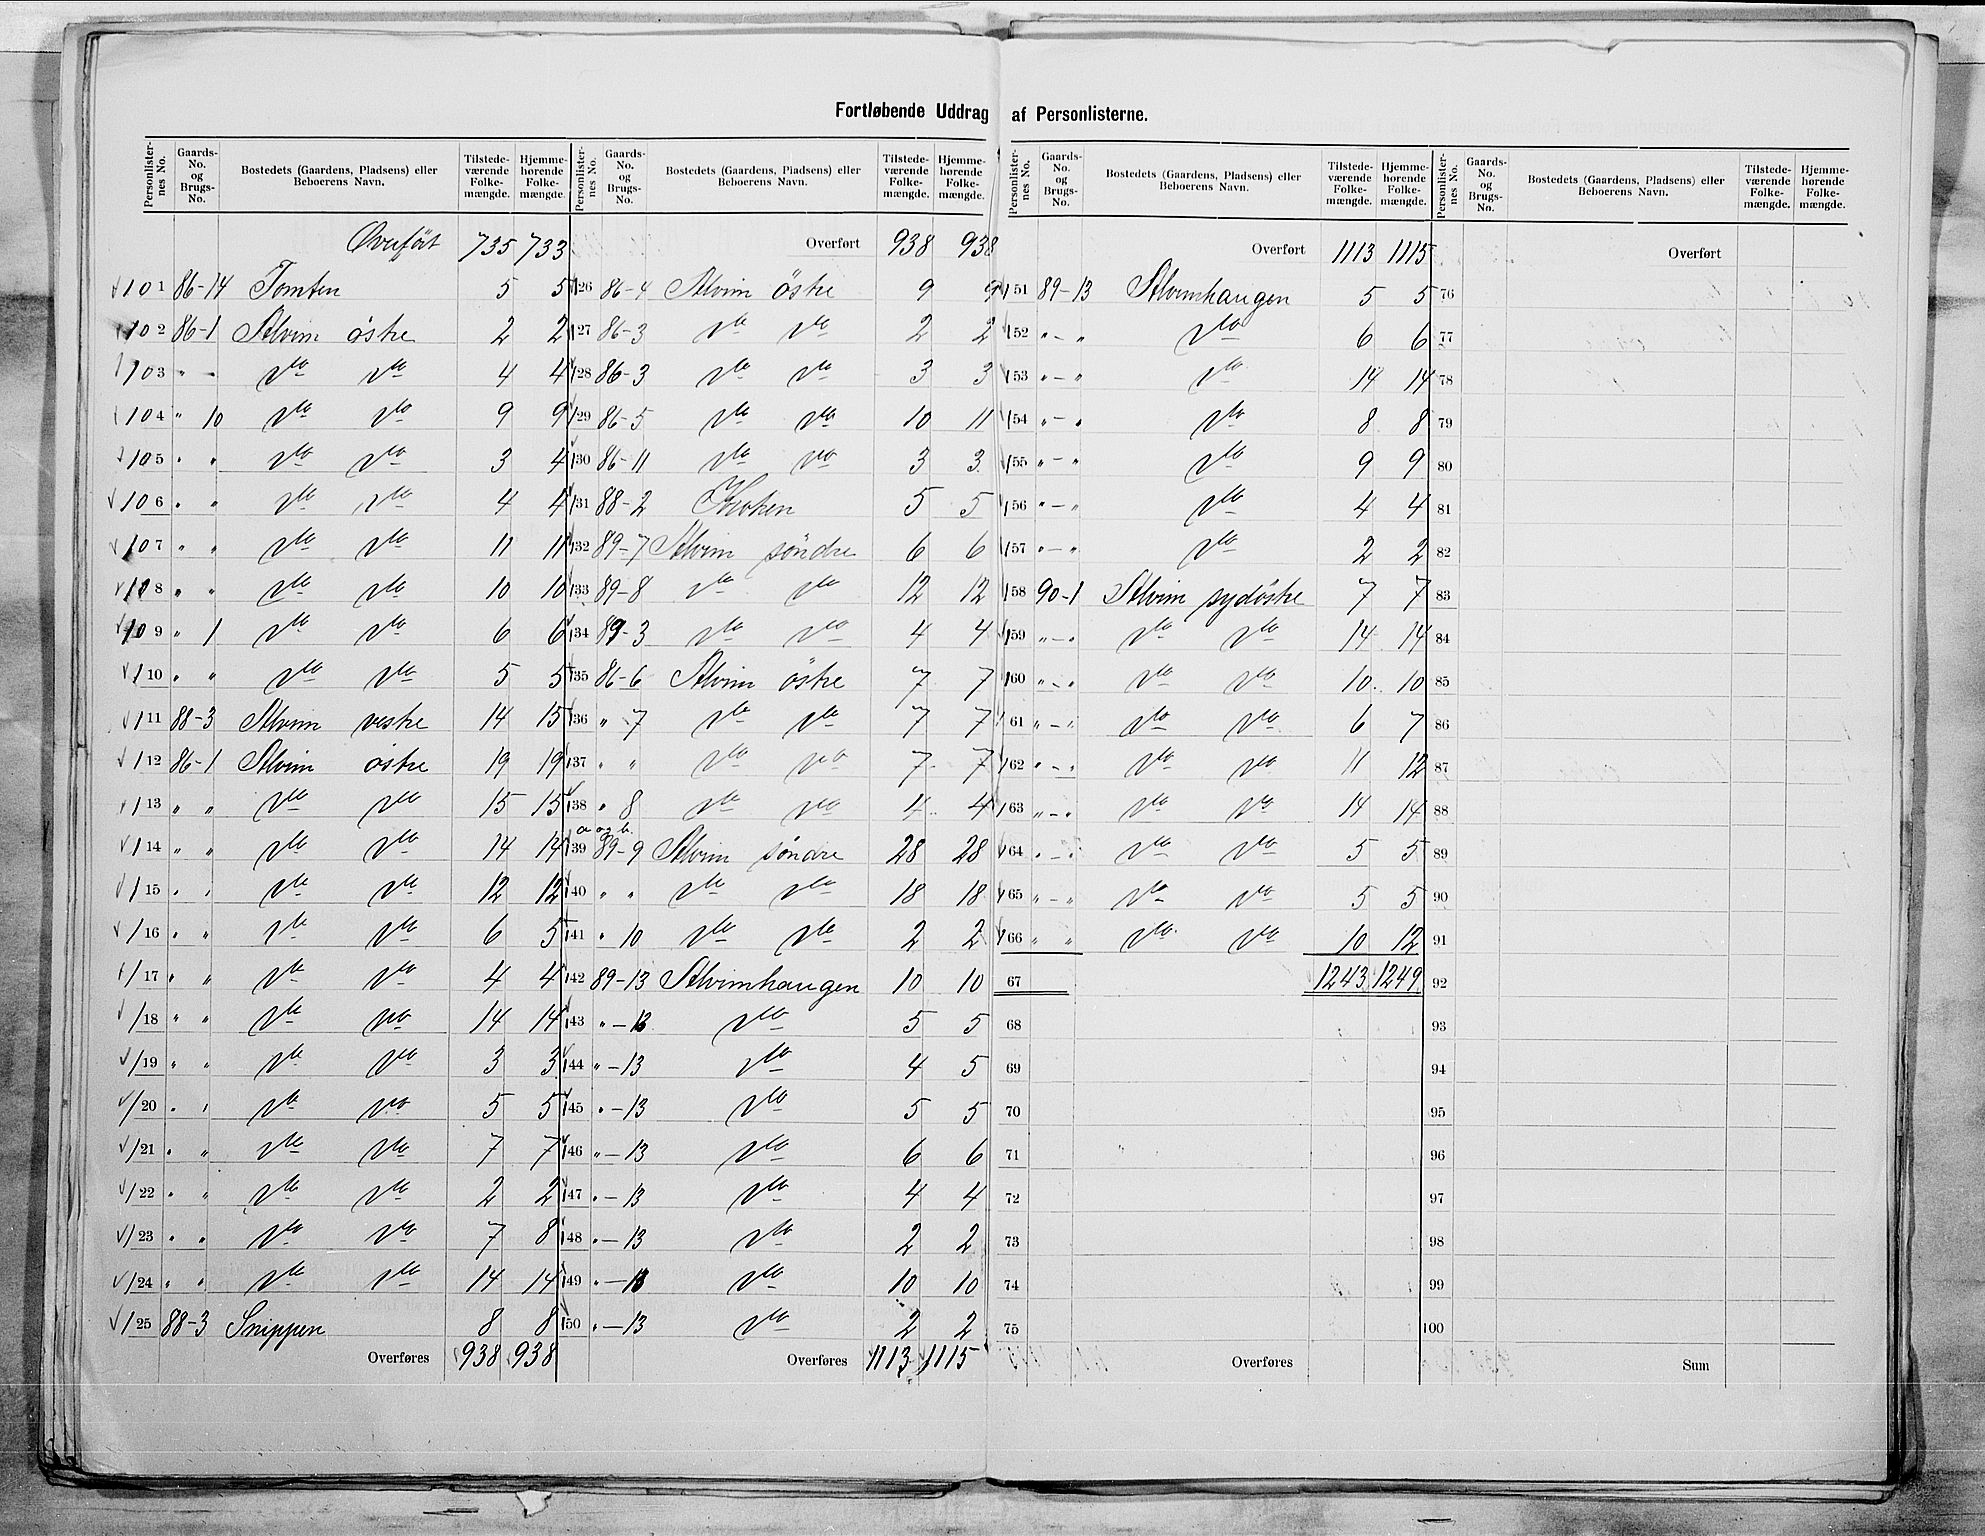 Fortløbende Uddrag af Personlisterne.
Personlisternes No. Gaards-No. og Brugs-No. Bostedets (Gaardens, Pladsens) eller Beboerens Navn. Tilstedeværende Folkemængde. Hjemmehørende Folkemængde.
Overført 735 733
101 86-14 Tomten 5 5
102 86-1 Alvim östre 2 2
103 " " dto dto 4 4
104 " 10 dto dto 9 9
105 " " dto dto 3 4
106 " " dto dto 4 4
107 " " dto dto 11 11
108 " " dto dto 10 10
109 " 1 dto dto 6 6
110 " " dto dto 5 5
111 88-3 Alvim vestre 14 15
112 86-1 Alvim östre 19 19
113 " " dto dto 15 15
114 " " dto dto 14 14
115 " " dto dto 12 12
116 " " dto dto 6 5
117 " " dto dto 4 4
118 " " dto dto 14 14
119 " " dto dto 3 3
120 " " dto dto 5 5
121 " " dto dto 7 7
122 " " dto dto 2 2
123 " " dto dto 7 8
124 " " dto dto 14 14
125 88-3 Snippen 8 8
Overføres 938 938
Personlisternes No. Gaards-No. og Brugs-No. Bostedets (Gaardens, Pladsens) eller Beboerens Navn. Tilstedeværende Folkemængde. Hjemmehørende Folkemængde.
Overført 938 938
126 86-4 Alvim östre 9 9
127 86-3 dto dto 2 2
128 86-3 dto dto 3 3
129 86-5 dto dto 10 11
130 86-11 dto dto 3 3
131 88-2 Kroken 5 5
132 89-7 Alvim söndre 6 6
133 89-8 dto dto 12 12
134 89-3 dto dto 4 4
135 86-6 Alvim östre 7 7
136 " 7 dto dto 7 7
137 " " dto dto 7 7
138 " 8 dto dto 4 4
a og b.
139 89-9 Alvim söndre 28 28
140 " " dto dto 18 18
141 " 10 dto dto 2 2
142 89-13 Alvimhaugen 10 10
143 " -13 dto 5 5
144 " -13 dto 4 5
145 " -13 dto 5 5
146 " -13 dto 6 6
147 " -13 dto 4 4
148 " -13 dto 2 2
149 " -13 dto 10 10
150 " -13 dto 2 2
Overføres 1113 1115
Personlisternes No. Gaards-No. og Brugs-No. Bostedets (Gaardens, Pladsens) eller Beboerens Navn. Tilstedeværende Folkemængde. Hjemmehørende Folkemængde.
Overført 1113 1115
151 89-13 Alvimhaugen 5 5
152 " - " dto 6 6
153 " - " dto 14 14
154 " - " dto 8 8
155 " - " dto 9 9
156 " - " dto 4 4
157 " - " dto 2 2
158 90-1 Alvim sydöstre 7 7
159 " - " dto dto 14 14
160 " - " dto dto 10 10
161 " - " dto dto 6 7
162 " - " dto dto 11 12
163 " - " dto dto 14 14
164 " - " dto dto 5 5
165 " - " dto dto 5 5
166 " " dto dto 10 12
67 1243 1249
68
69
70
71
72
73
74
75
Overføres
Personlisternes No. Gaards-No. og Brugs-No. Bostedets (Gaardens, Pladsens) eller Beboerens Navn. Tilstedeværende Folkemængde. Hjemmehørende Folkemængde.
Overført
76
77
78
79
80
81
82
83
84
85
86
87
88
89
90
91
92
93
94
95
96
97
98
99
100
Sum